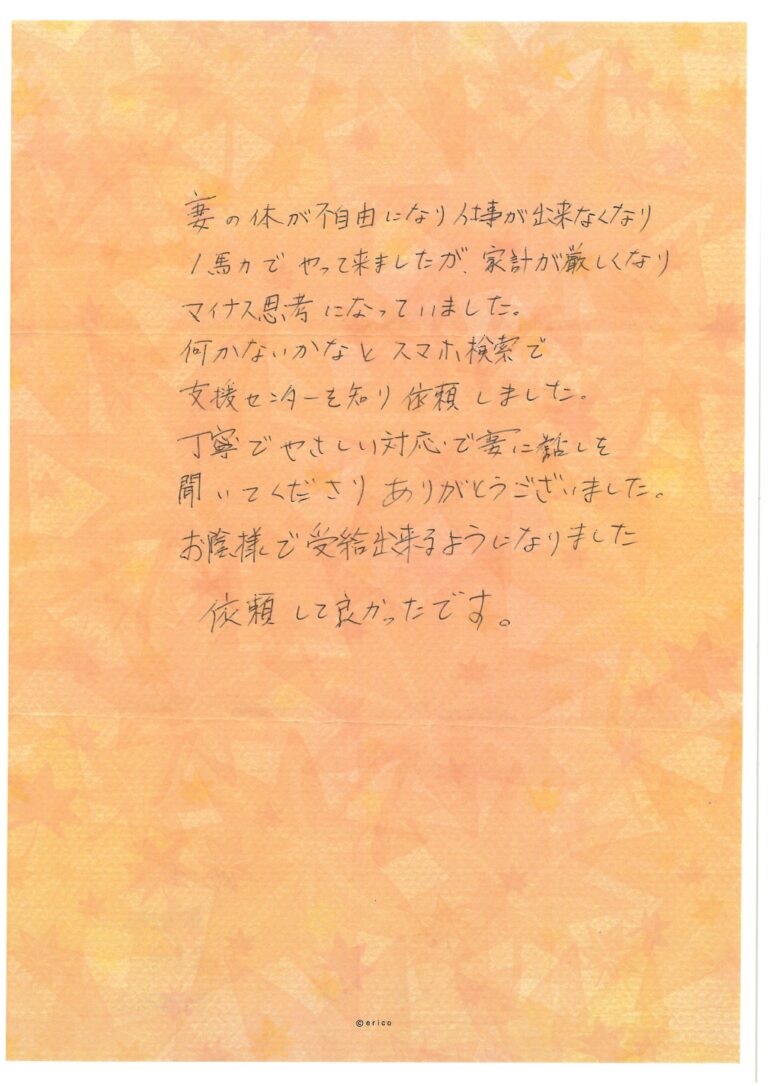 妻の体が不自由になり仕事が出来なくなり
1馬力でやって来ましたが、家計が厳しくなり
マイナス思考になっていました。
何かないかなとスマホ検索で
支援センターを知り依頼しました。
丁寧でやさしい対応で妻に話しを
聞いてくださりありがとうございました。
お陰様で受給出来るようになりました
依頼して良かったです。
©erico